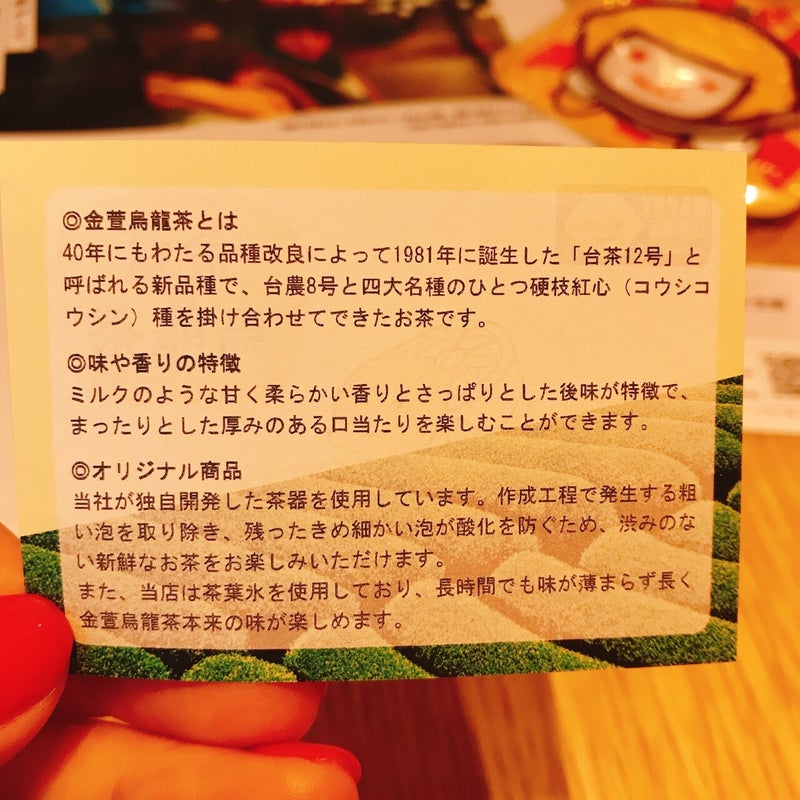 ◎金萱烏龍茶とは
40年にもわたる品種改良によって1981年に誕生した「台茶12号」と
呼ばれる新品種で、台農8号と四大名種のひとつ硬枝紅心（コウシコ
ウシン）種を掛け合わせてできたお茶です。
◎味や香りの特徴
ミルクのような甘く柔らかい香りとさっぱりとした後味が特徴で、
まったりとした厚みのある口当たりを楽しむことができます。
◎オリジナル商品
当社が独自開発した茶器を使用しています。作成工程で発生する粗
い泡を取り除き、残ったきめ細かい泡が酸化を防ぐため、渋みのな
い新鮮なお茶をお楽しみいただけます。
また、当店は茶葉氷を使用しており、長時間でも味が薄まらず長く
金萱烏龍茶本来の味が楽しめます。